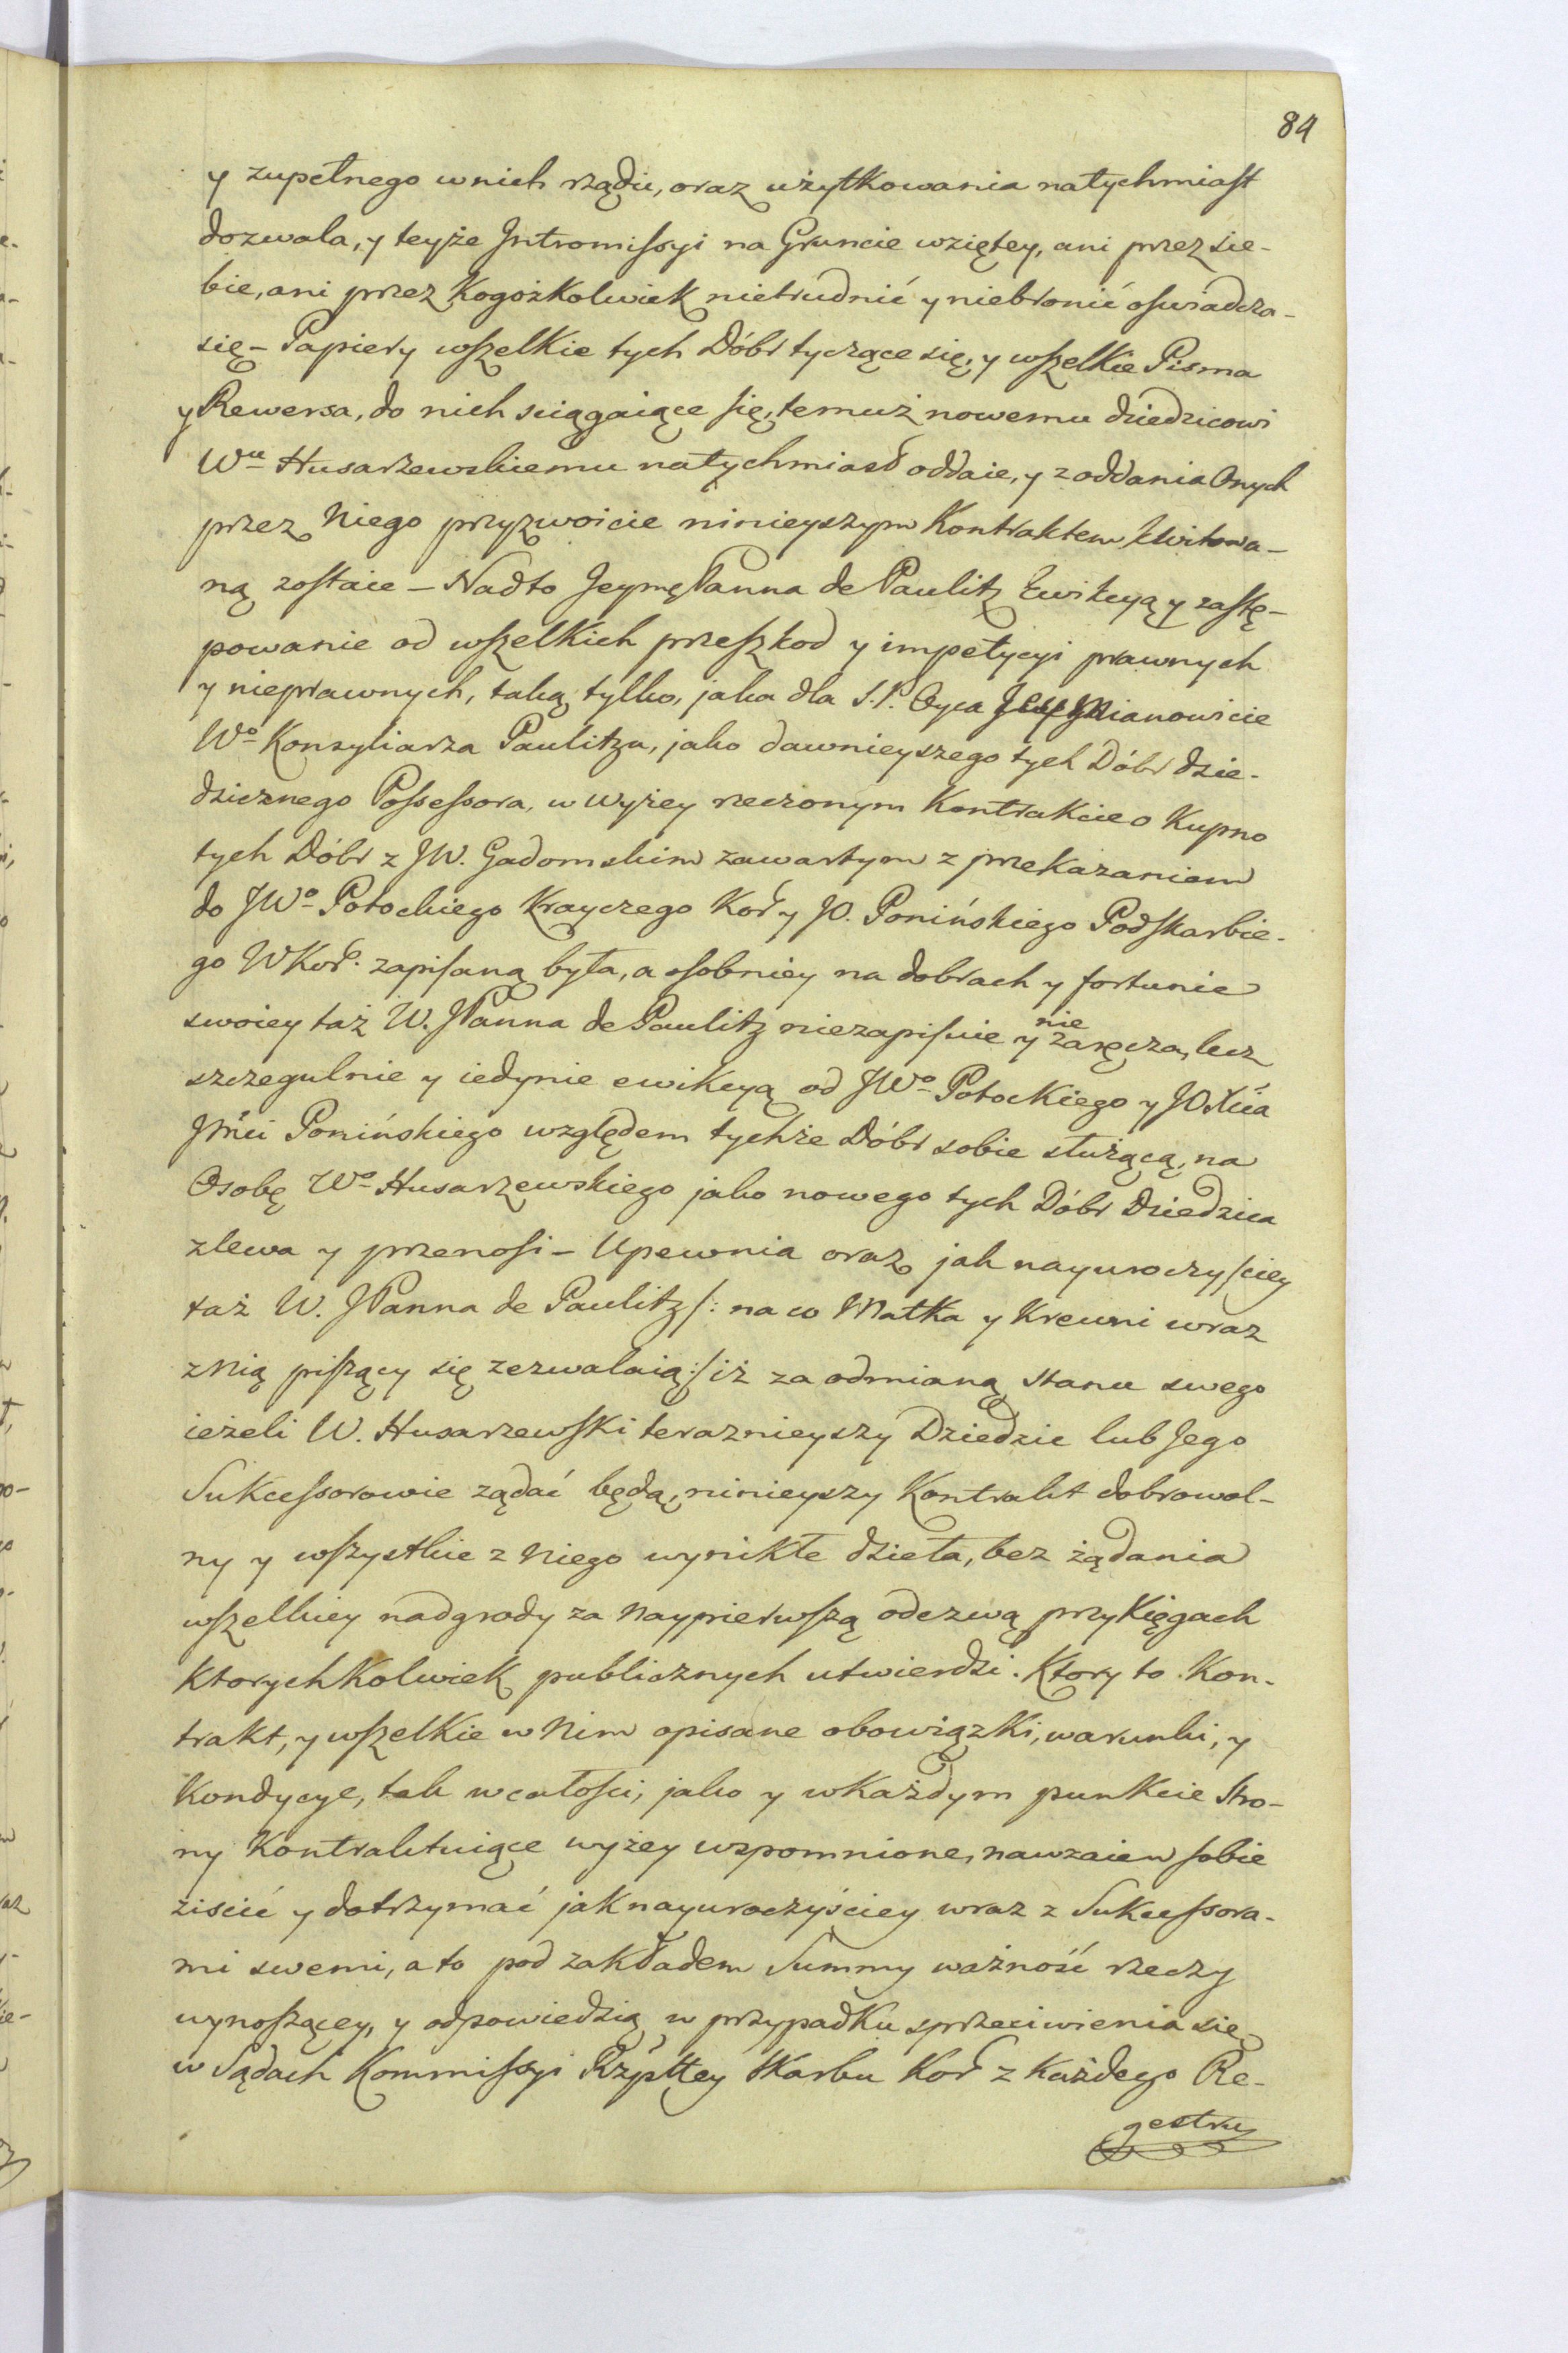 84
y zupełnego w nich rządu, oraz użytkowania natychmiast
dozwala, y teyże Intromissyi na Gruncie wziętey, ani przez sie-
bie, ani przez kogożkolwiek nietrudnić y niebronić oswiadcza-
się – Papiery wszelkie tych Dóbr tyczące się, y wszelkie Pisma
y Rewersa, do nich sciągaiące się, temuż nowemu dziedzicowi
Wu Husarzewskiemu natychmiast oddaie, y z oddania Onych
przez Niego przyzwoicie ninieyszym Kontraktem kwitowa-
ną zostaie – Nadto Jeymć Panna de Paulitz Ewikcyą y zastę-
powanie od wszelkich przeszkod y impetycyi prawnych
y nieprawnych, taką tylko, jaka dla S. P. Oyca mianowicie
Wo Konsyliarza Paulitza, jako dawnieyszego tych Dóbr dzie-
dzicznego Possessora, w wyżey rzeczonym Kontrakcie o Kupno
tych Dóbr z JW. Gadomskim zawartym z przekazaniem
do JWo Potockiego Krayczego Kor y JO. Ponińskiego Podskarbie-
go WKor. zapisaną była, a osobniey na dobrach y fortunie
swoiey taż W. JPanna de Paulitz niezapisuie y nie zaręcza, lecz
szczegulnie y iedynie ewikcyą od JWo Potockiego y JOXcia
Jmci Ponińskiego względem tychże Dóbr sobie służącą, na
Osobę Wo Husarzewskiego jako nowego tych Dóbr Dziedzica
zlewa y przenosi – Upewnia oraz jak nayuroczyściey
taż W. JPanna de Paulitz /: na co Matka y Krewni wraz
z Nią piszący się zezwalaią :/ iż za odmianą stanu swego
ieżeli W. Husarzewski teraznieyszy Dziedzic lub Jego
Sukcessorowie ządać będą, ninieyszy Kontrakt dobrowol-
ny y wszystkie z Niego wynikłe dzieła, bez żądania
wszelkiey nadgrody za naypierwszą odezwą przy Xięgach
ktorychkolwiek publicznych utwierdzi. Ktory to Kon-
trakt, y wszelkie w Nim opisane obowiązki, warunki, y
kondycye, tak w całości, jako y w każdym punkcie Stro-
ny Kontraktuiące wyżey wspomnione, nawzaiem sobie
ziscić y dotrzymać jak nayuroczyściey wraz z Sukcessora-
mi swemi, a to pod zakładem Summy ważność rzeczy
wynoszącey, y odpowiedzią w przypadku sprzeciwienia się
w Sądach Kommissyi Rzpltey Skarbu Kor z każdego Re-
gestru